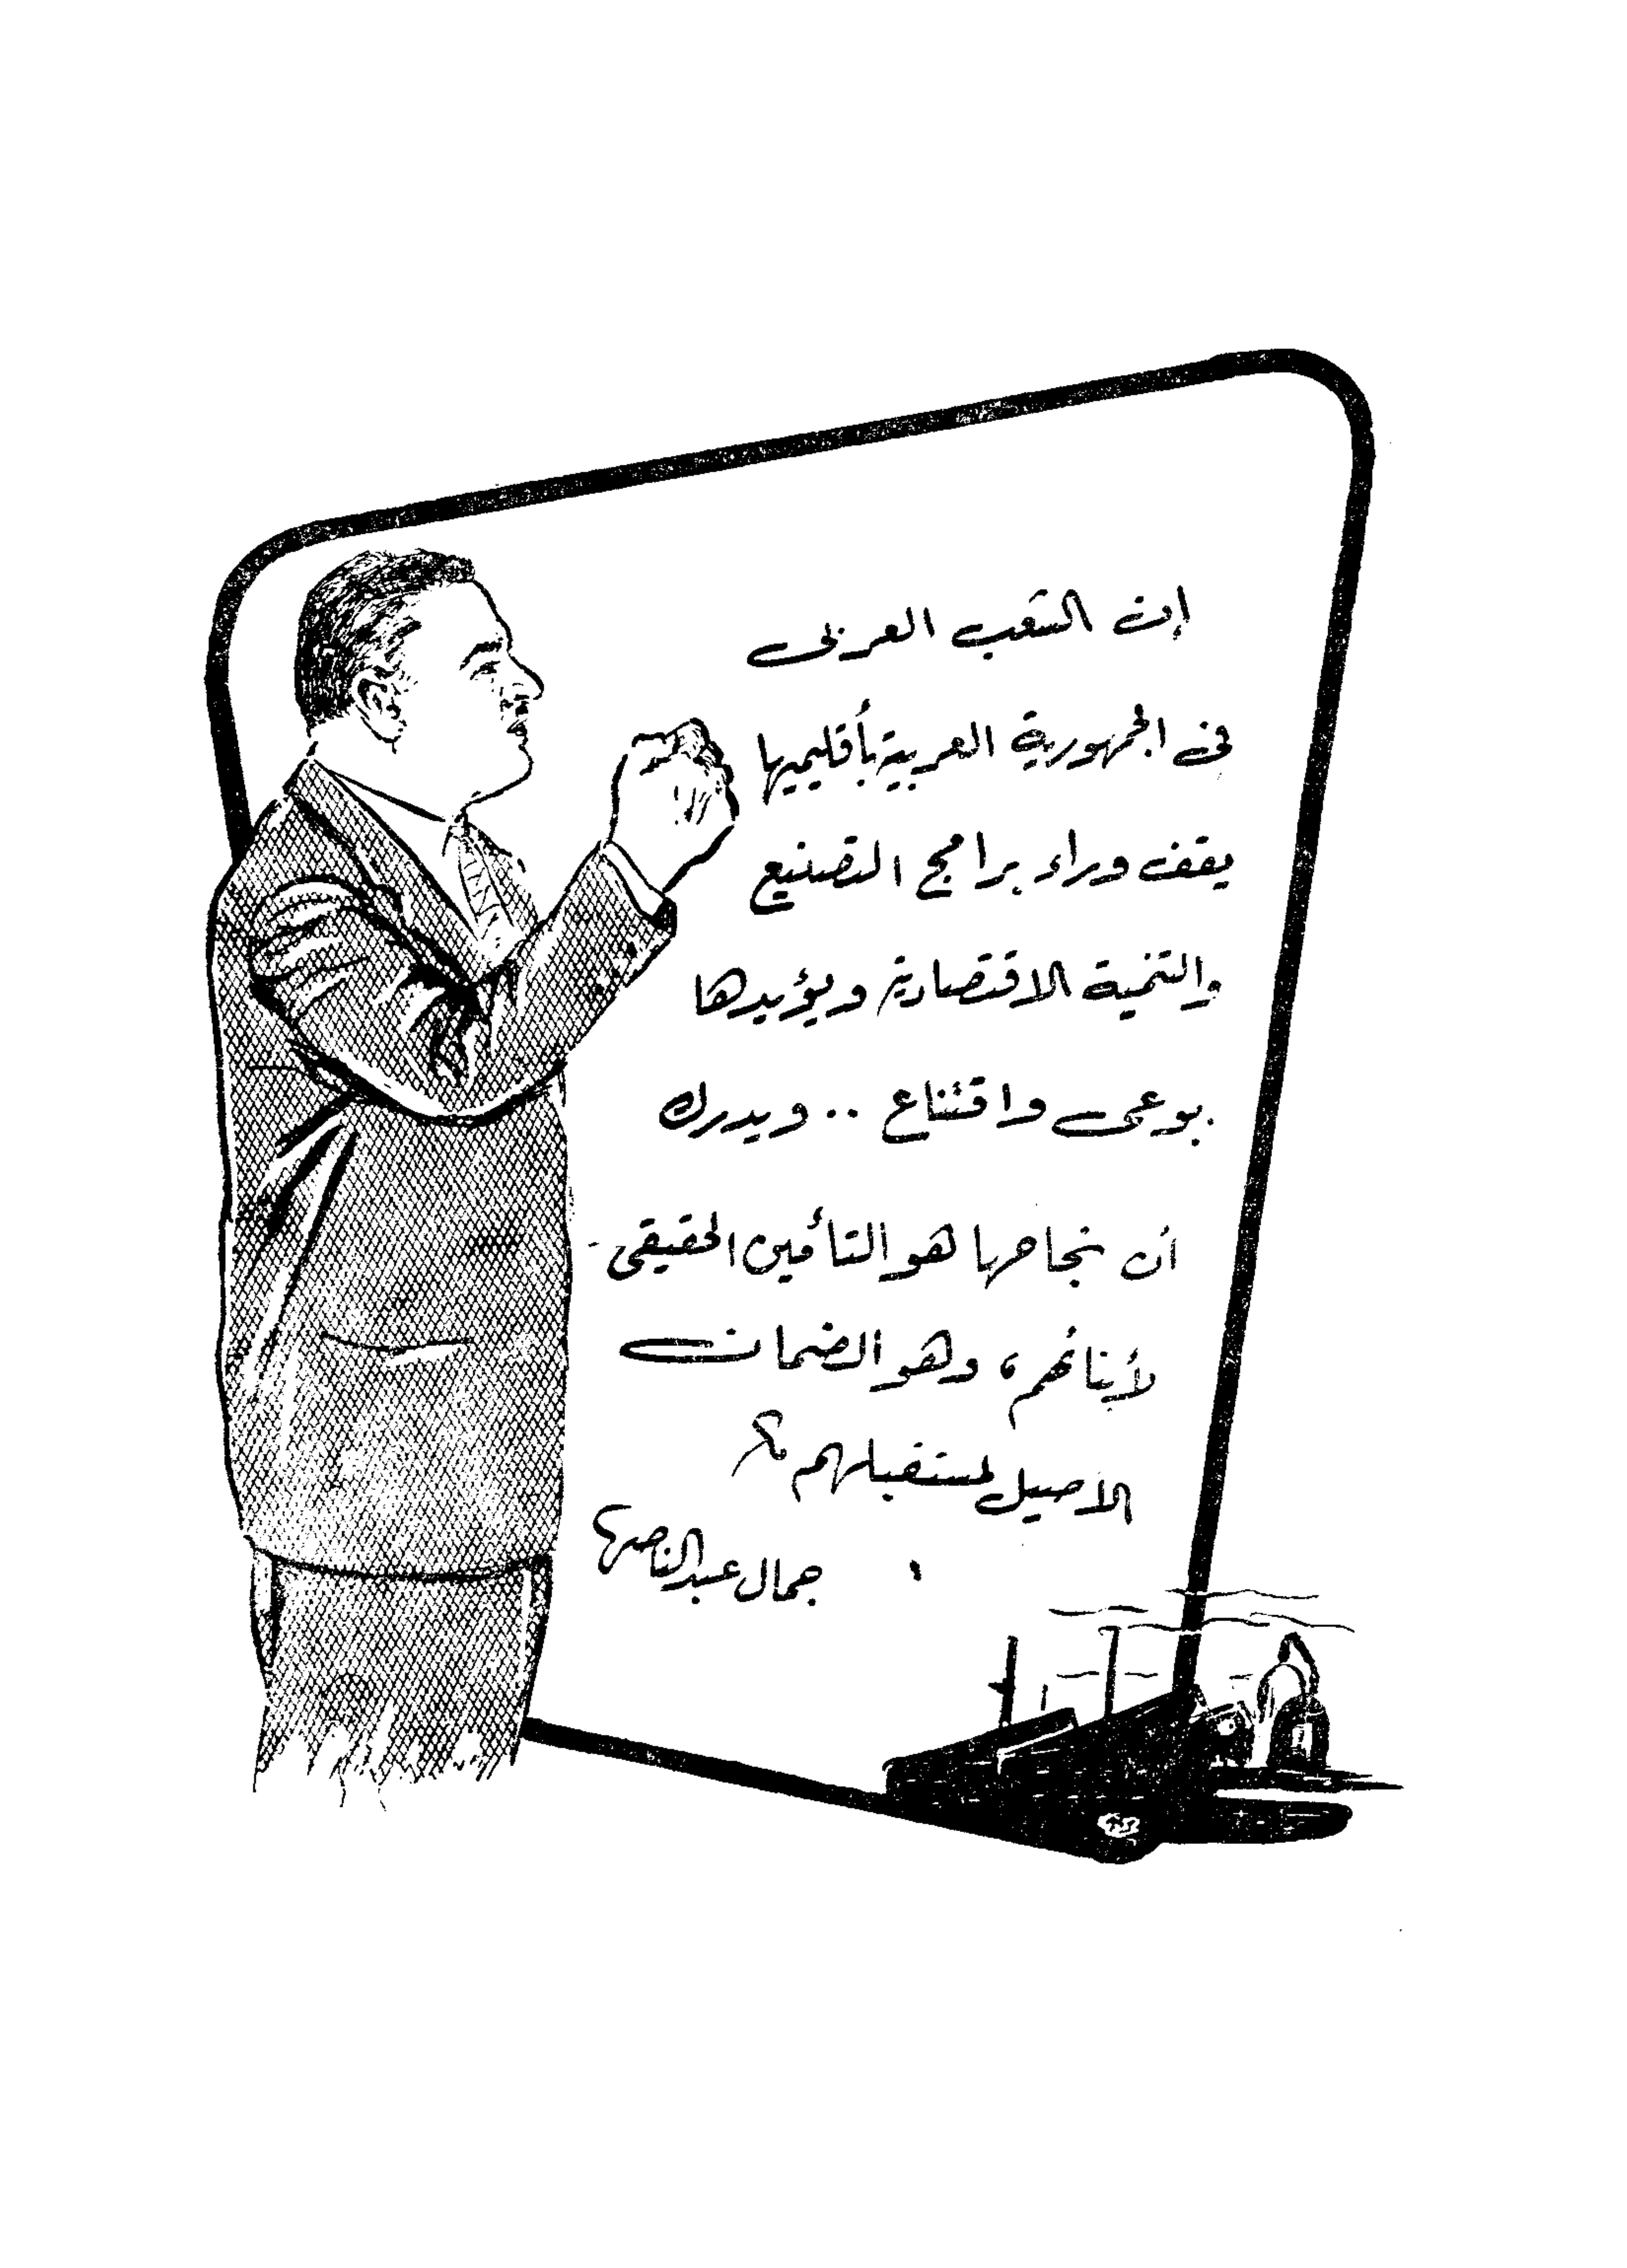 إن الشعب العربى
فى الجمهورية العربية بأقليميها
يقف وراء برامج التصنيع
والتنمية الاقتصادية ويؤيدها
بوعى واقتناع .. ويدرك
أن نجاحها هو التأمين الحقيقى
لأبنائهم، وهو الضمان
الأصيل لمستقبلهم
جمال عبد الناصر